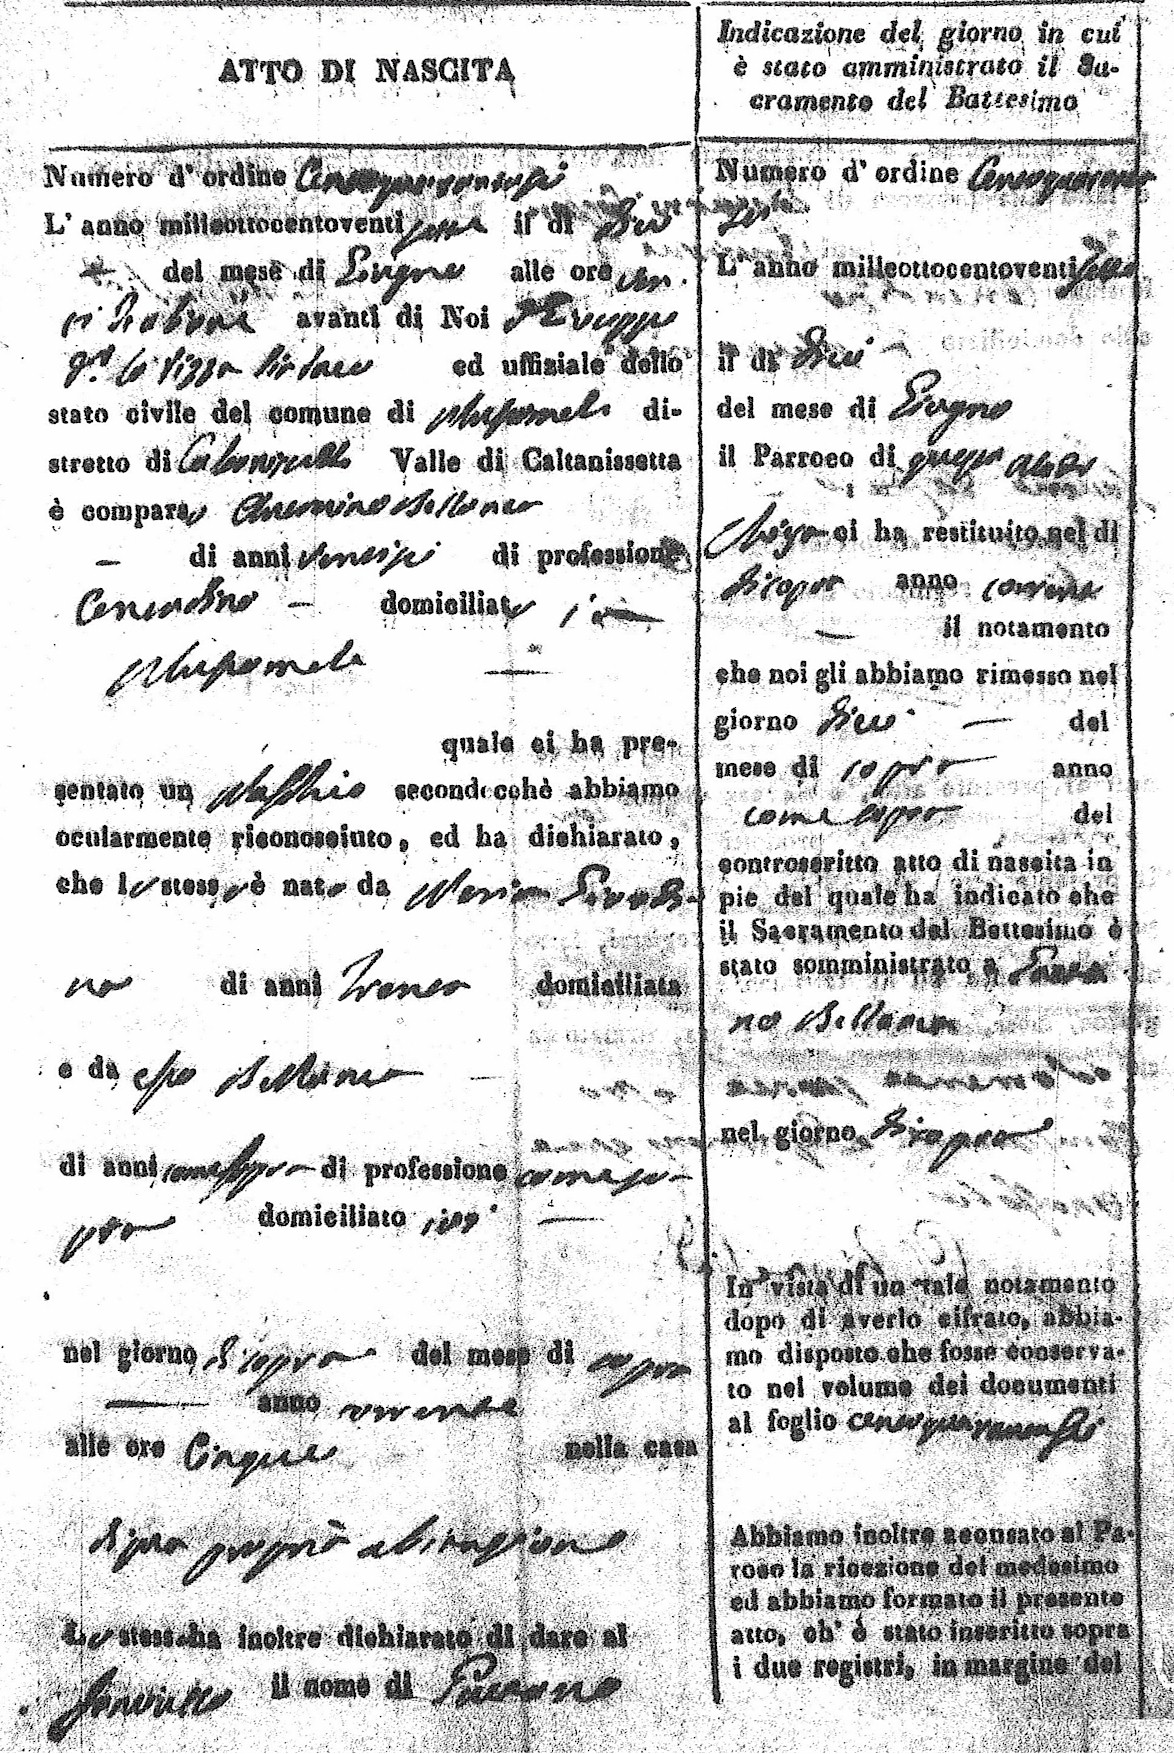 ATTO DI NASCITA
Numero d' ordine Centoquarantasei
L' anno milleottocentoventi sette il dì Dieci
del mese di Giugno alle ore
avanti di Noi D. Giuseppe
Sindaco ed uffiziale dello
stato civile del comune di Mussomeli di-
stretto di Caltanissetta Valle di Caltanissetta
è comparso Bellanca
di anni ventisei di professione
Contadino domiciliato in
Mussomeli
quale ci ha pre-
sentato un Maschio secondocchè abbiamo
ocularmente riconosciuto, ed ha dichiarato,
che lo stesso è nato da Maria
no di anni Trenta domiciliata
e da esso Bellanca
di anni come sopra di professione come so-
pra domiciliato ivi
nel giorno di sopra del mese di sopra
anno corrente
alle ore Cinque nella casa
di sua propria abitazione
Lo stesso ha inoltre dichiarato di dare al
fanciullo il nome di Gaetano
Indicazione del giorno in cui
è stato amministrato il Sa-
cramento del Battesimo
Numero d' ordine Centoquaranta
sei
L' anno milleottocentoventi sette
il dì Dieci
del mese di Giugno
il Parroco di questa Madre
Chiesa ci ha restituito nel dì
di sopra anno corrente
il notamento
che noi gli abbiamo rimesso nel
giorno Dieci del
mese di sopra anno
come sopra del
controscritto atto di nascita in
pie del quale ha indicato che
il Sacramento del Battesimo è
stato somministrato a Gaeta
no Bellanca
nel giorno di sopra
In vista di un tale notamento
dopo di averlo cifrato, abbia-
mo disposto che fosse conserva-
to nel volume dei documenti
al foglio centoquarantasei
Abbiamo inoltre accusato al Pa-
roco la ricezione del medesimo
ed abbiamo formato il presente
atto, ch' è stato inserito sopra
i due registri, in margine del